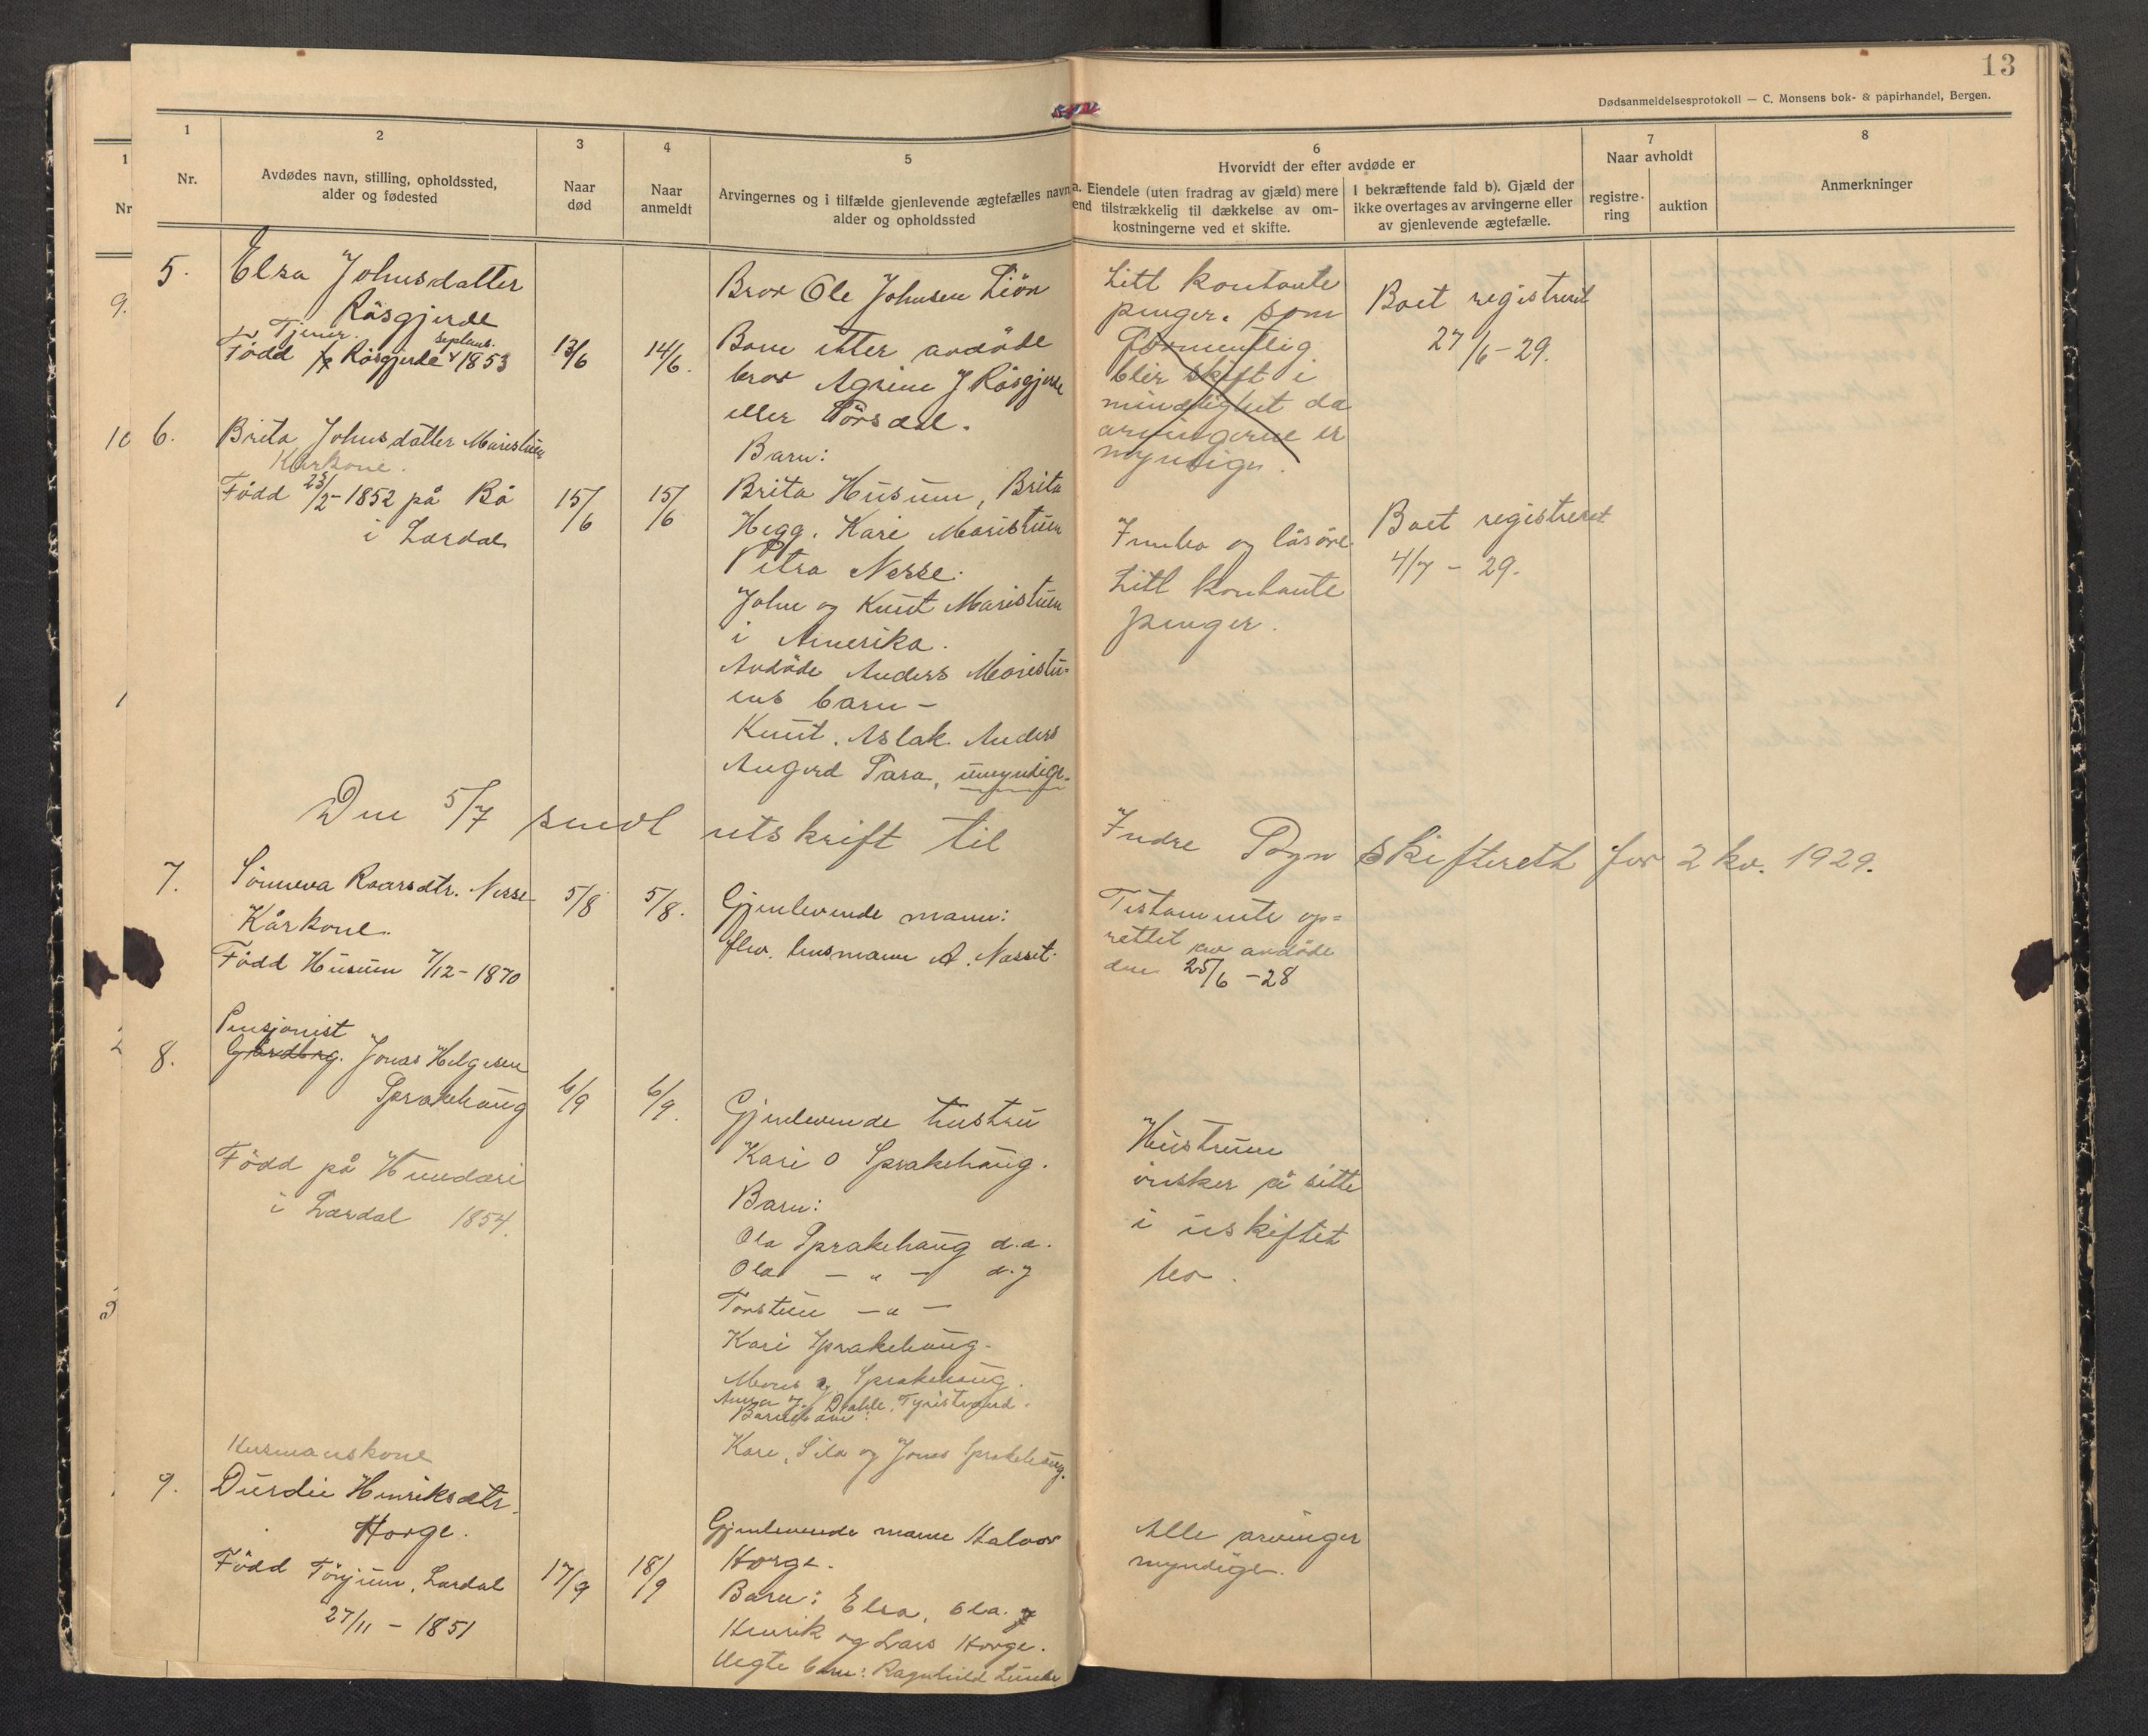 13
Dødsanmeldelsesprotokoll — C. Monsens bok- & papirhandel, Bergen.
1
Nr.
2
Avdødes navn, stilling, opholdssted,
alder og fødested
3
Naar
død
4
Naar
anmeldt
5
Arvingernes og i tilfælde gjenlevende ægtefælles navn
alder og opholdssted
6
Hvorvidt der efter avdøde er
a. Eiendele (uten fradrag av gjæld) mere
end tilstrækkelig til dækkelse av om-
kostningerne ved et skifte.
I bekræftende fald b). Gjæld der
ikke overtages av arvingerne eller
av gjenlevende ægtefælle.
7
Naar avholdt
registre-
ring
auktion
8
Anmerkninger
1
Nr
9.
10
5.
Elsa Johnsdatter
Råsgjerde
Tjener.
Født på Råsgjerde septemb. 1853
13/6
14/6.
Bror Ole Johnsen Liön
Barn etter avdöde
bror Agrim J Råsgjerde
eller Törsdal.
Litt kontante
penger. som
formentlig
blir skift i
mindelighet da
arvingerne er
myndige.
Boet registrert
27/6-29.
6.
Brita Johnsdatter Maristuen
Kårkone.
Född 23/2-1852 på Bö
i Lærdal
15/6
15/6
Barn:
Brita Husum, Brita
Hegg. Kari Maristuen
Petra Nesse.
John og Knut Maristuen
i Amerika.
Avdöde Anders Maristu=
ens barn –
Knut. Aslak. Anders
Angerd Sara, umyndige.
Innbo og lösöre.
Litt kontante
penger.
Boet registreret
4/7 – 29.
Den 5/7 sendt utskrift til Indre Sogn Skifterett for 2 kv. 1929.
7.
Sönneva Roarsdtr. Nesse
Kårkone.
Född Husum 7/12-1870
5/8
5/8.
Gjenlevende mann:
fhv. lensmann A. Nesset.
Testamente op=
rettet av avdöde
den 25/6 -28
8.
Pensjonist
Gårdbrg. Jonas Helgesen
Sprakehaug
Född på Hunderi
i Lærdal 1854.
6/9
6/9.
Gjenlevende hustru
Kari O Sprakehaug.
Barn:
Ola Sprakehaug d.e.
Ola — " — d.y
Torstein — " —
Kari Sprakehaug.
Sprakehaug.
Barnebarn:
Kari, Sila og Jonas Sprakehaug.
Hustruen
önsker å sitte
i uskiftet
bo.
9.
Husmanskone
Durdei Henriksdtr.
Horge.
Född Tönjum, Lærdal
27/11 – 1851
17/9
18/9
Gjenlevende mann Halvor
Horge.
Barn: Elsa, Ola.
Henrik og Lars Horge.
Uegte barn: Ragnhild
Alle arvinger
myndige.